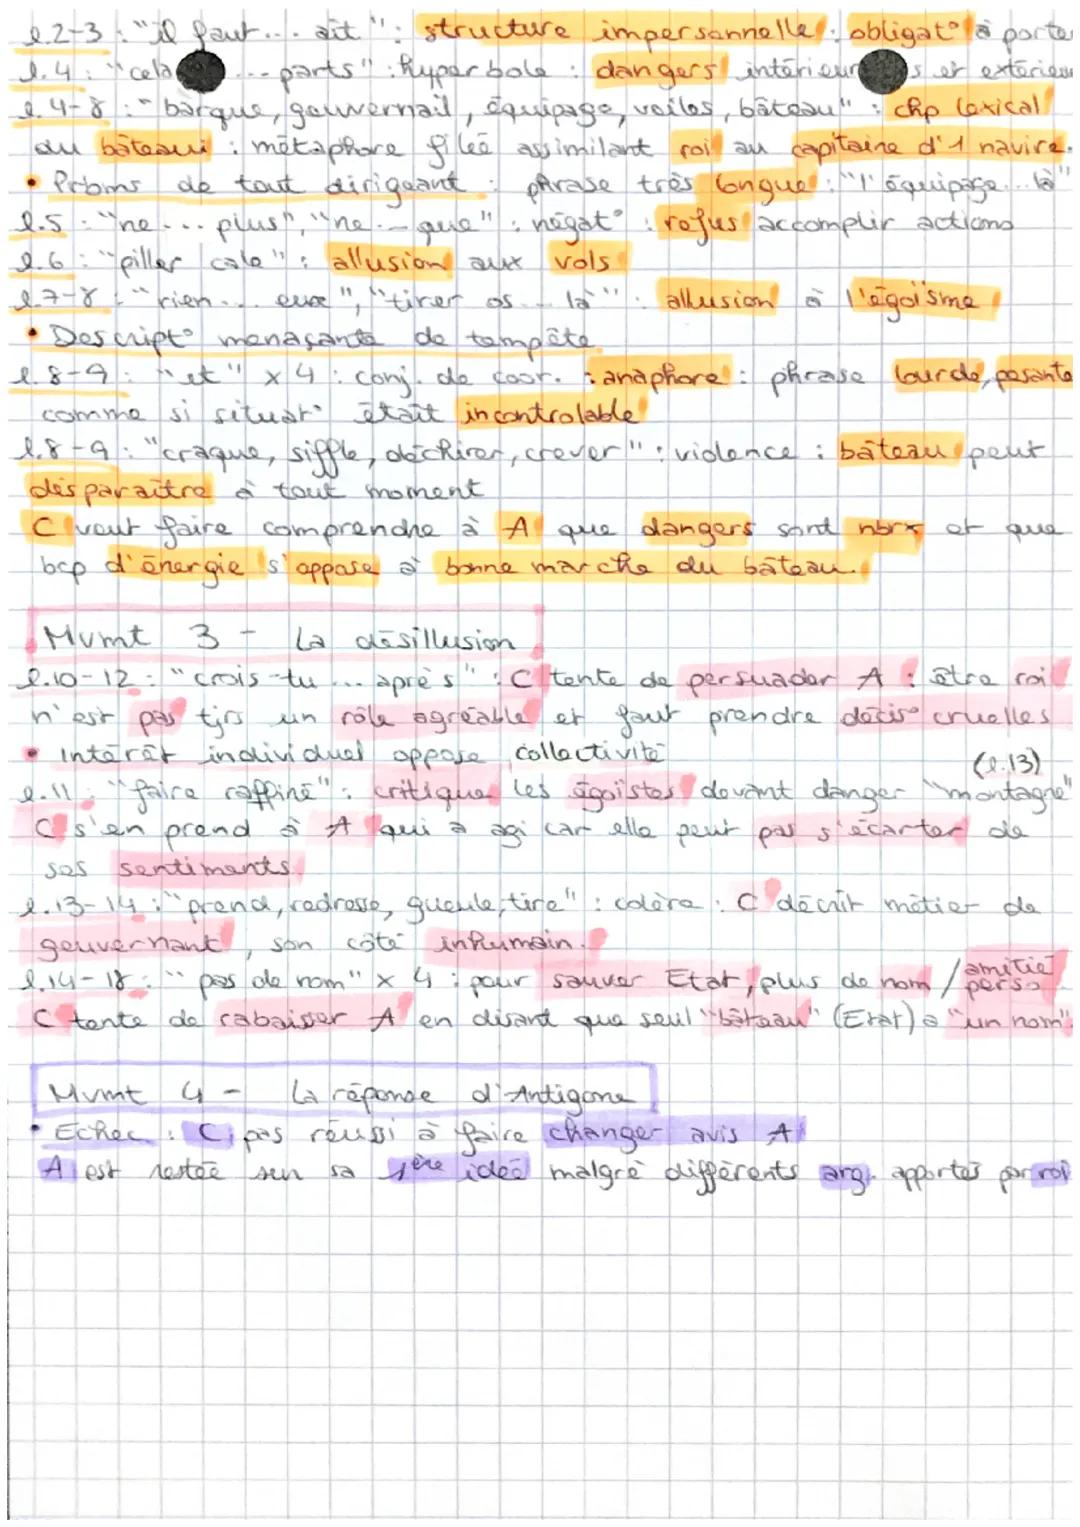 l.2-3 : "il faut... ait" : structure impersonnelle : obligat° à porter
l.4 : "cela ... parts" : hyperbole : dangers intérieurs et extérieurs
l.4-8 : "barque, gouvernail, équipage, voiles, bâteau" : chp lexical
du bâteau : métaphore filée assimilant roi au capitaine d'1 navire.
• Prbms de tout dirigeant : phrase très longue : "l'équipage...là"
l.5 : "ne ... plus", "ne ... que" : négat° : refus accomplir actions
l.6 : "piller cale" : allusion aux vols
l.7-8 : "rien ... eux", "tirer os ... là" : allusion à l'égoïsme
• Descript° menaçante de tempête
l.8-9 : "et" x 4 : conj. de coor. : anaphore : phrase lourde, pesante
comme si situat° était incontrolable
l.8-9 : "craque, siffle, déchirer, crever" : violence : bâteau peut
disparaître à tout moment
C veut faire comprendre à A que dangers sont nbrx et que
bcp d'énergie s'oppose à bonne marche du bâteau.
Mvmt 3 - La désillusion
l.10-12 : "crois-tu ... après" : C tente de persuader A : être roi
n'est pas tjrs un rôle agréable et faut prendre décis° cruelles
• Intérêt individuel oppose collectivité
(l.13)
l.11 : "faire raffiné" : critique les égoïstes devant danger "montagne"
C s'en prend à A qui a agi car elle peut pas s'écarter de
ses sentiments.
l.13-14 : "prend, redresse, gueule, tire" : colère : C décrit métier de
gouvernant, son côté inhumain.
l.14-18 : "pas de nom" x 4 : pour sauver Etat, plus de nom / amitié perso
C tente de rabaisser A en disant que seul "bâteau" (Etat) a "un nom".
Mvmt 4 - La réponse d'Antigone
• Echec : C pas réussi à faire changer avis A
A est restée sur sa 1ère idée malgré différents arg. apportés par roi